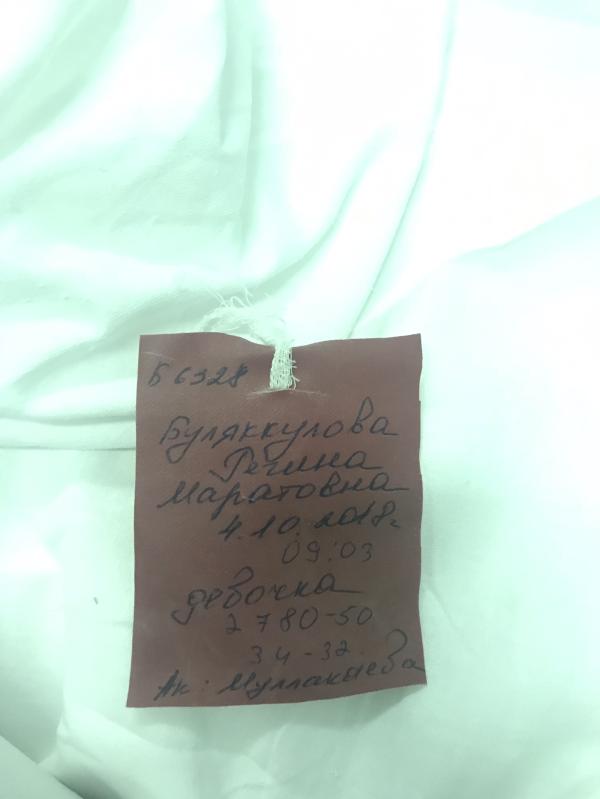 Б 6328
Буляккулова
Регина
Маратовна
4.10.2018г
09:03
девочка
2780-50
34-32
Ак: Муллакаева